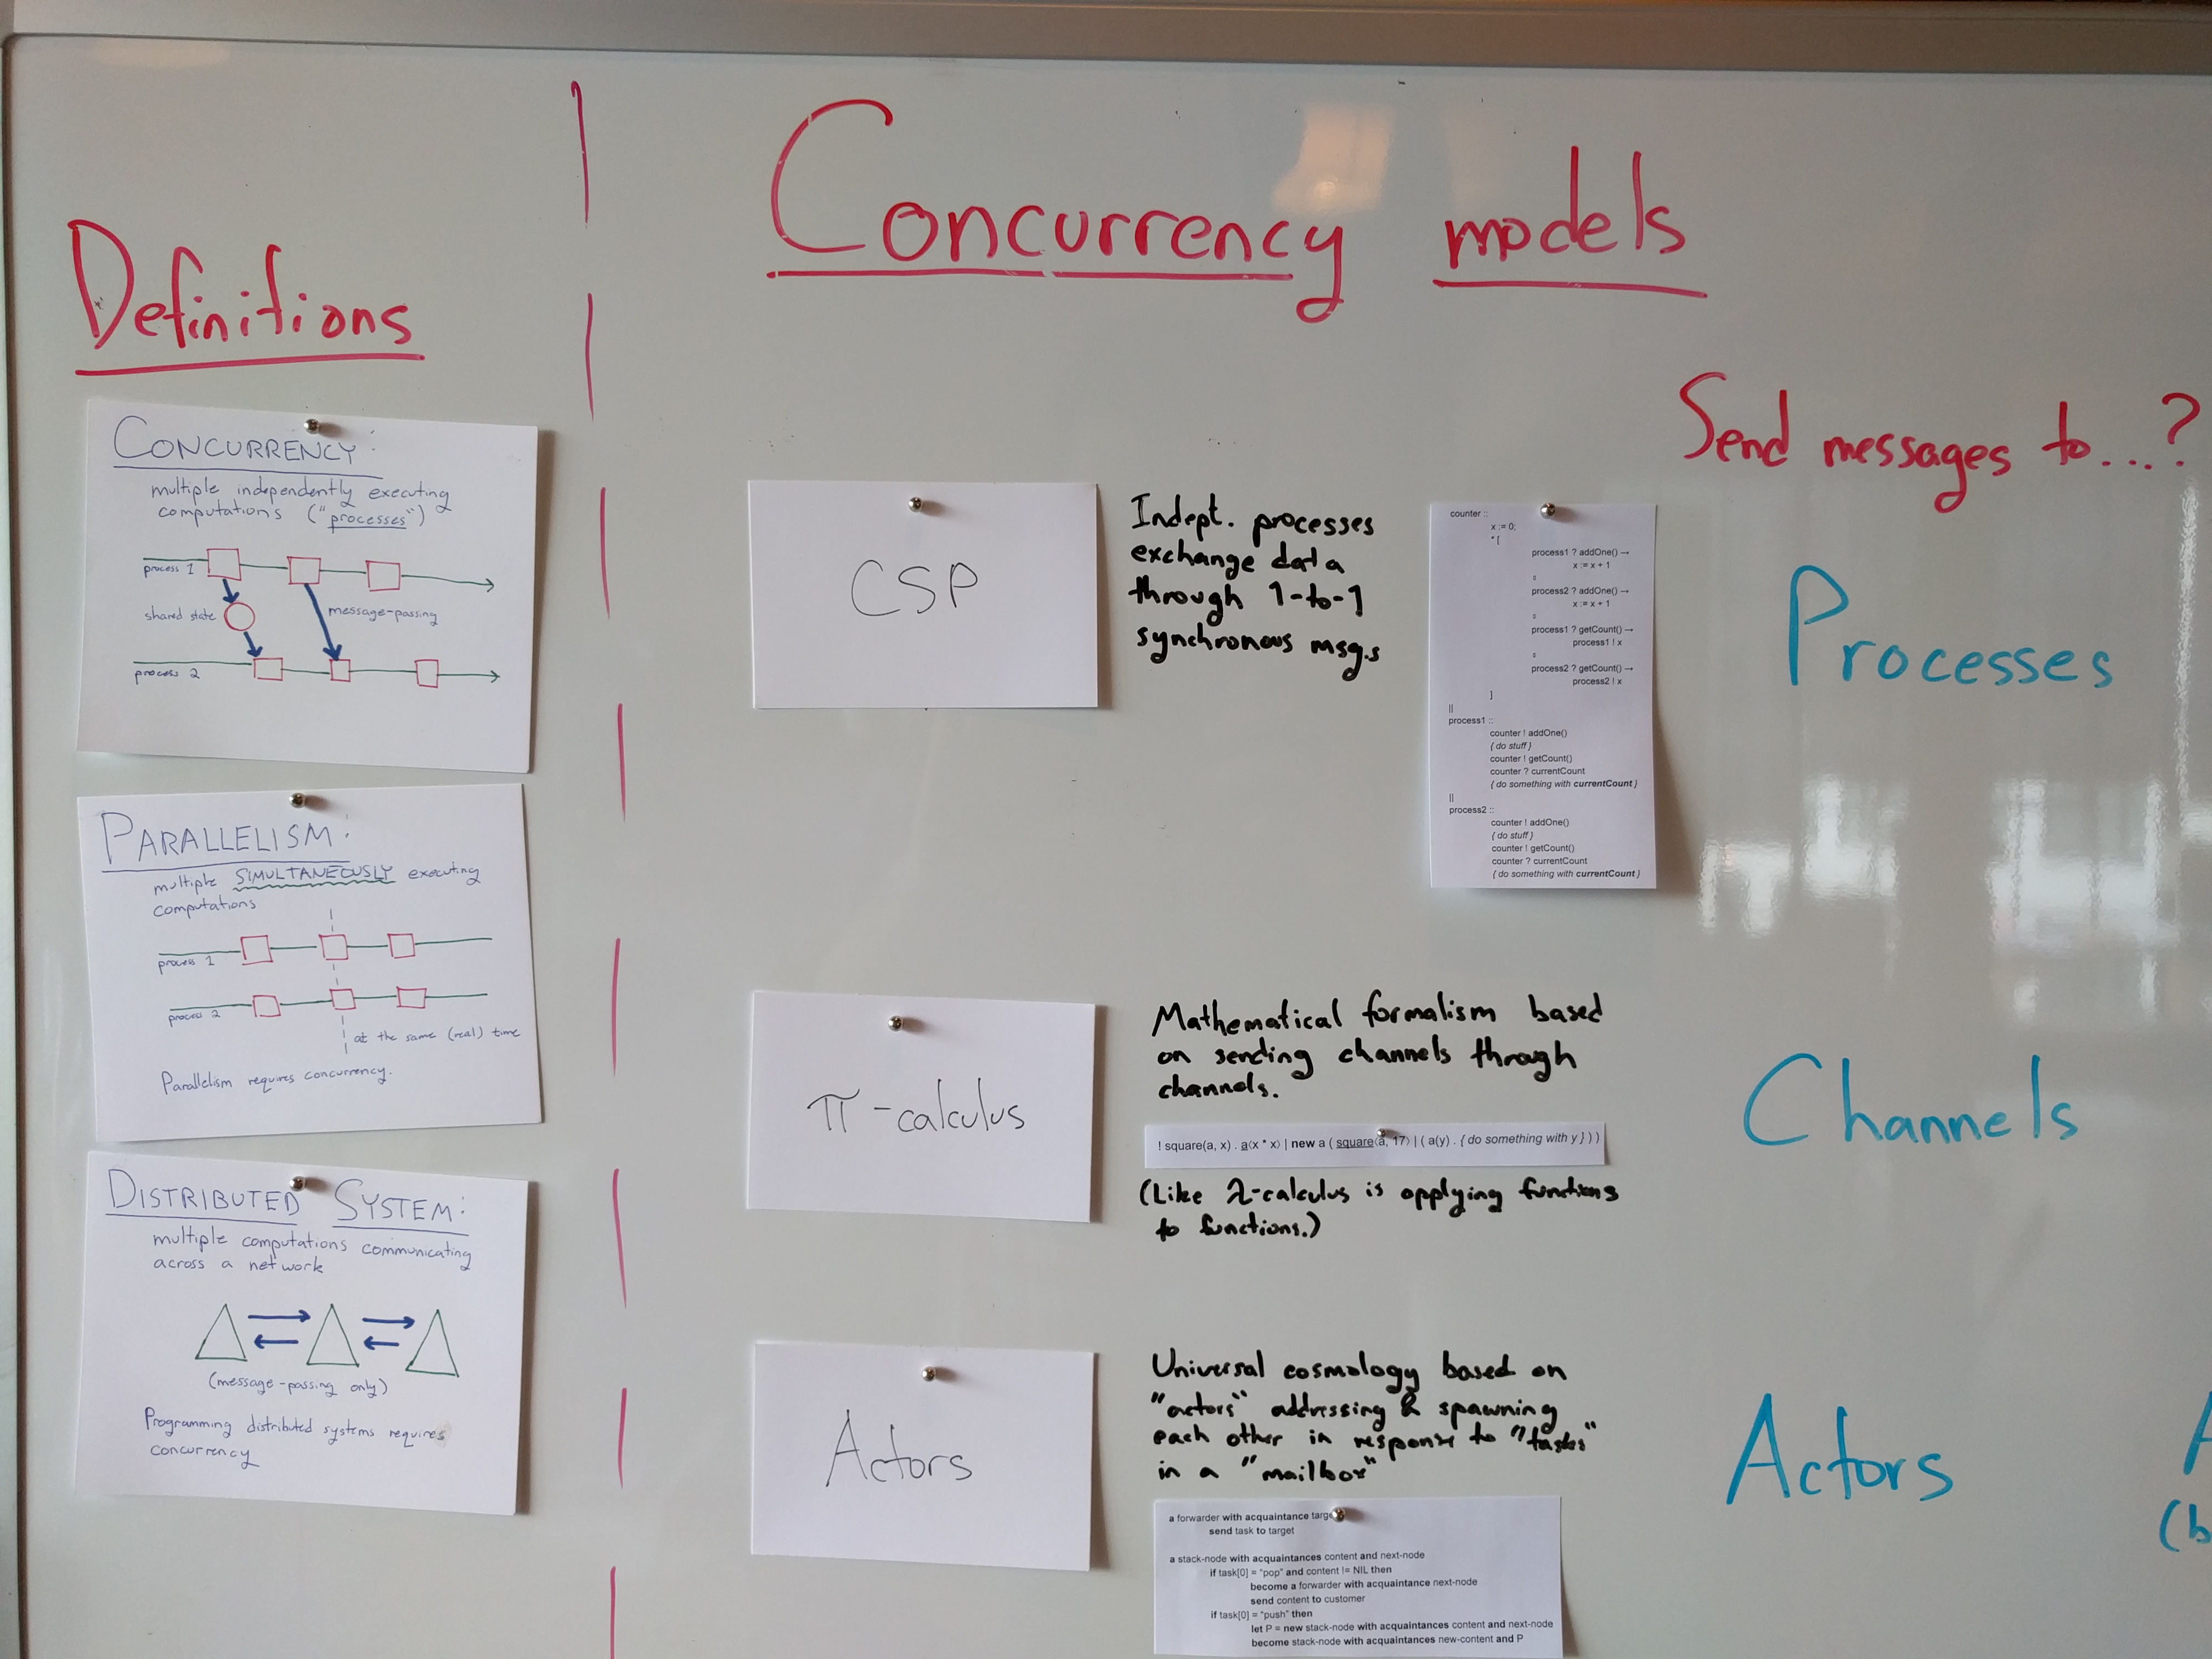 Concurrency models
Definitions
CONCURRENCY:
multiple independently executing
computations ("processes")
process 1
shared state
message-passing
process 2
PARALLELISM:
multiple SIMULTANEOUSLY executing
computations
process 1
process 2
at the same (real) time
Parallelism requires concurrency.
DISTRIBUTED SYSTEM:
multiple computations communicating
across a network
(message-passing only)
Programming distributed systems requires
concurrency
Send messages to....?
CSP
Indept. processes
exchange data
through 1-to-1
synchronous msg.s
counter ::
x := 0;
*[
process1 ? addOne() →
x := x + 1
process2 ? addOne() →
x := x + 1
process1 ? getCount() →
process1 ! x
process2 ? getCount() →
process2 ! x
]
||
process1 ::
counter ! addOne()
{ do stuff }
counter ! getCount()
counter ? currentCount
{ do something with currentCount }
||
process2 ::
counter ! addOne()
{ do stuff }
counter ! getCount()
counter ? currentCount
{ do something with currentCount }
Processes
π-calculus
Mathematical formalism based
on sending channels through
channels.
! square(a, x) . a⟨x * x⟩ | new a ( square⟨a, 17⟩ | ( a(y) . { do something with y } ) )
(Like λ-calculus is applying functions
to functions.)
Channels
Actors
Universal cosmology based on
"actors" addressing & spawning
each other in response to "tasks"
in a "mailbox"
a forwarder with acquaintance
send task to target
a stack-node with acquaintances content and next-node
if task[0] = "pop" and content != NIL then
become a forwarder with acquaintance next-node
send content to customer
if task[0] = "push" then
let P = new stack-node with acquaintances content and next-node
become stack-node with acquaintances new-content and P
Actors